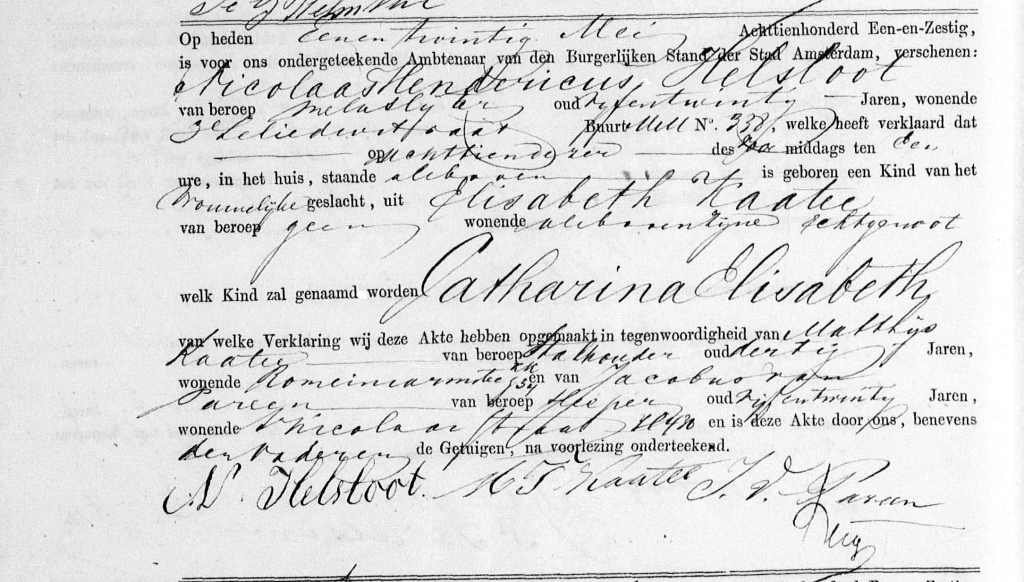 Op heden Eenentwintig Mei Achttienhonderd Een-en-Zestig,
is voor ons ondergeteekende Ambtenaar van den Burgerlijken Stand der Stad Amsterdam, verschenen:
Nicolaas Hendericus Helsloot
van beroep oud vijfentwintig Jaren, wonende
Leliedwarsstraat Buurt N°. 338, welke heeft verklaard dat
op Achttiendezer des middags ten
ure, in het huis, staande alsboven is geboren een Kind van het
Vrouwelijke geslacht, uit Elisabeth Kaatee
van beroep geen wonende alsboven zijne Echtgenoot
welk Kind zal genaamd worden Catharina Elisabeth
van welke Verklaring wij deze Akte hebben opgemaakt in tegenwoordigheid van Matthijs
Kaatee van beroep Stalhouder oud dertig Jaren,
wonende en van Jacobus van
Pareen van beroep oud vijfentwintig Jaren,
wonende Nicolaasstraat en is deze Akte door ons, benevens
den Vader en de Getuigen, na voorlezing onderteekend.
N. Helsloot. Kaatee J. V. Pareen